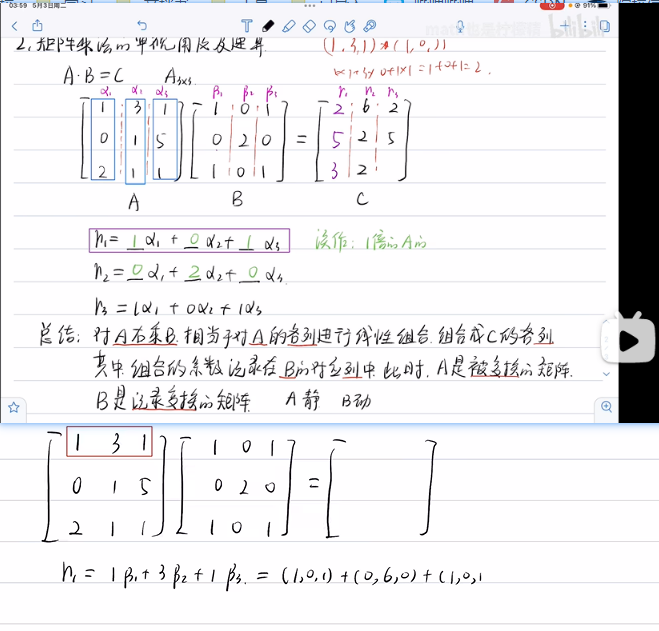 03:59 5月3日周二
91%
2. 矩阵乘法的 及运算
(1,3,1)*(1,0,1)
1×1+3×0+1×1=1+0+1=2.
A·B=C A₃ₓ₃
α₁ α₂ α₃ β₁ β₂ β₃ r₁ r₂ r₃
[1 3 1] [1 0 1] [2 6 2]
[0 1 5] [0 2 0] = [5 2 5]
[2 1 1] [1 0 1] [3 2]
A B C
r₁= 1 α₁ + 0 α₂ + 1 α₃ 读作: 1倍的A的
r₂= 0 α₁ + 2 α₂ + 0 α₃
r₃ = 1α₁ + 0α₂ + 1α₃
总结: 对A右乘B. 相当于对A的各列进行线性组合. 组合成C的各列
其中组合的系数记录在B的对应列中. 此时. A是被变换的矩阵.
B是记录变换的矩阵. A静 B动
[1 3 1] [1 0 1]
[0 1 5] [0 2 0] = [ ]
[2 1 1] [1 0 1]
r₁ = 1β₁+3β₂+1β₃. = (1,0,1)+(0,6,0)+(1,0,1